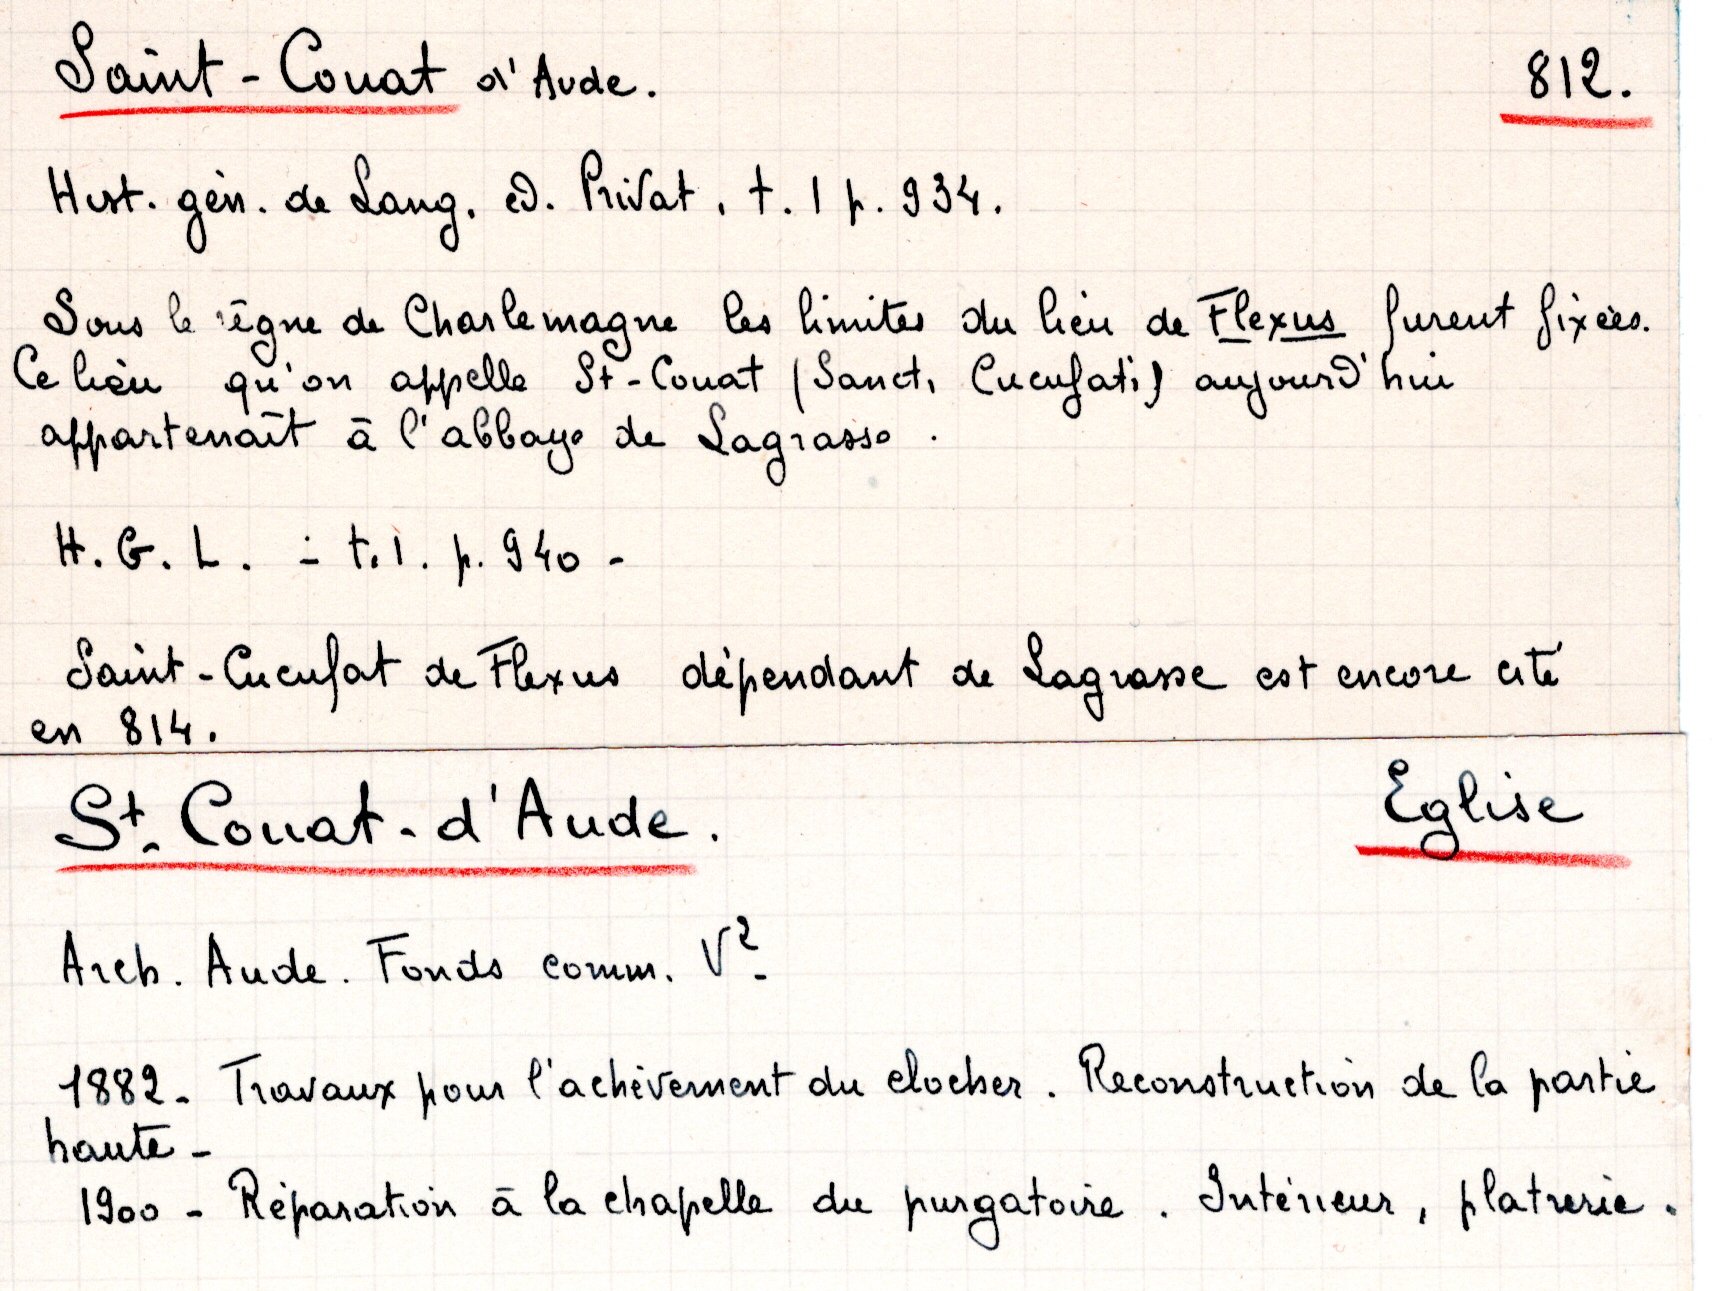 Saint-Couat d'Aude. 812.
Hist. gén. de Lang. ed. Privat, t. 1 p. 934.
Sous le règne de Charlemagne les limites du lieu de Flexus furent fixées.
Ce lieu qu'on appelle St-Couat (Sancti Cucufati) aujourd'hui
appartenait à l'abbaye de Lagrasse.
H. G. L. - t. 1. p. 940 -
Saint-Cucufat de Flexus dépendant de Lagrasse est encore cité
en 814.
St. Couat-d'Aude. Eglise
Arch. Aude. Fonds comm. V²-
1882 - Travaux pour l'achèvement du clocher. Reconstruction de la partie
haute -
1900 - Réparation à la chapelle du purgatoire. Intérieur, platrerie.